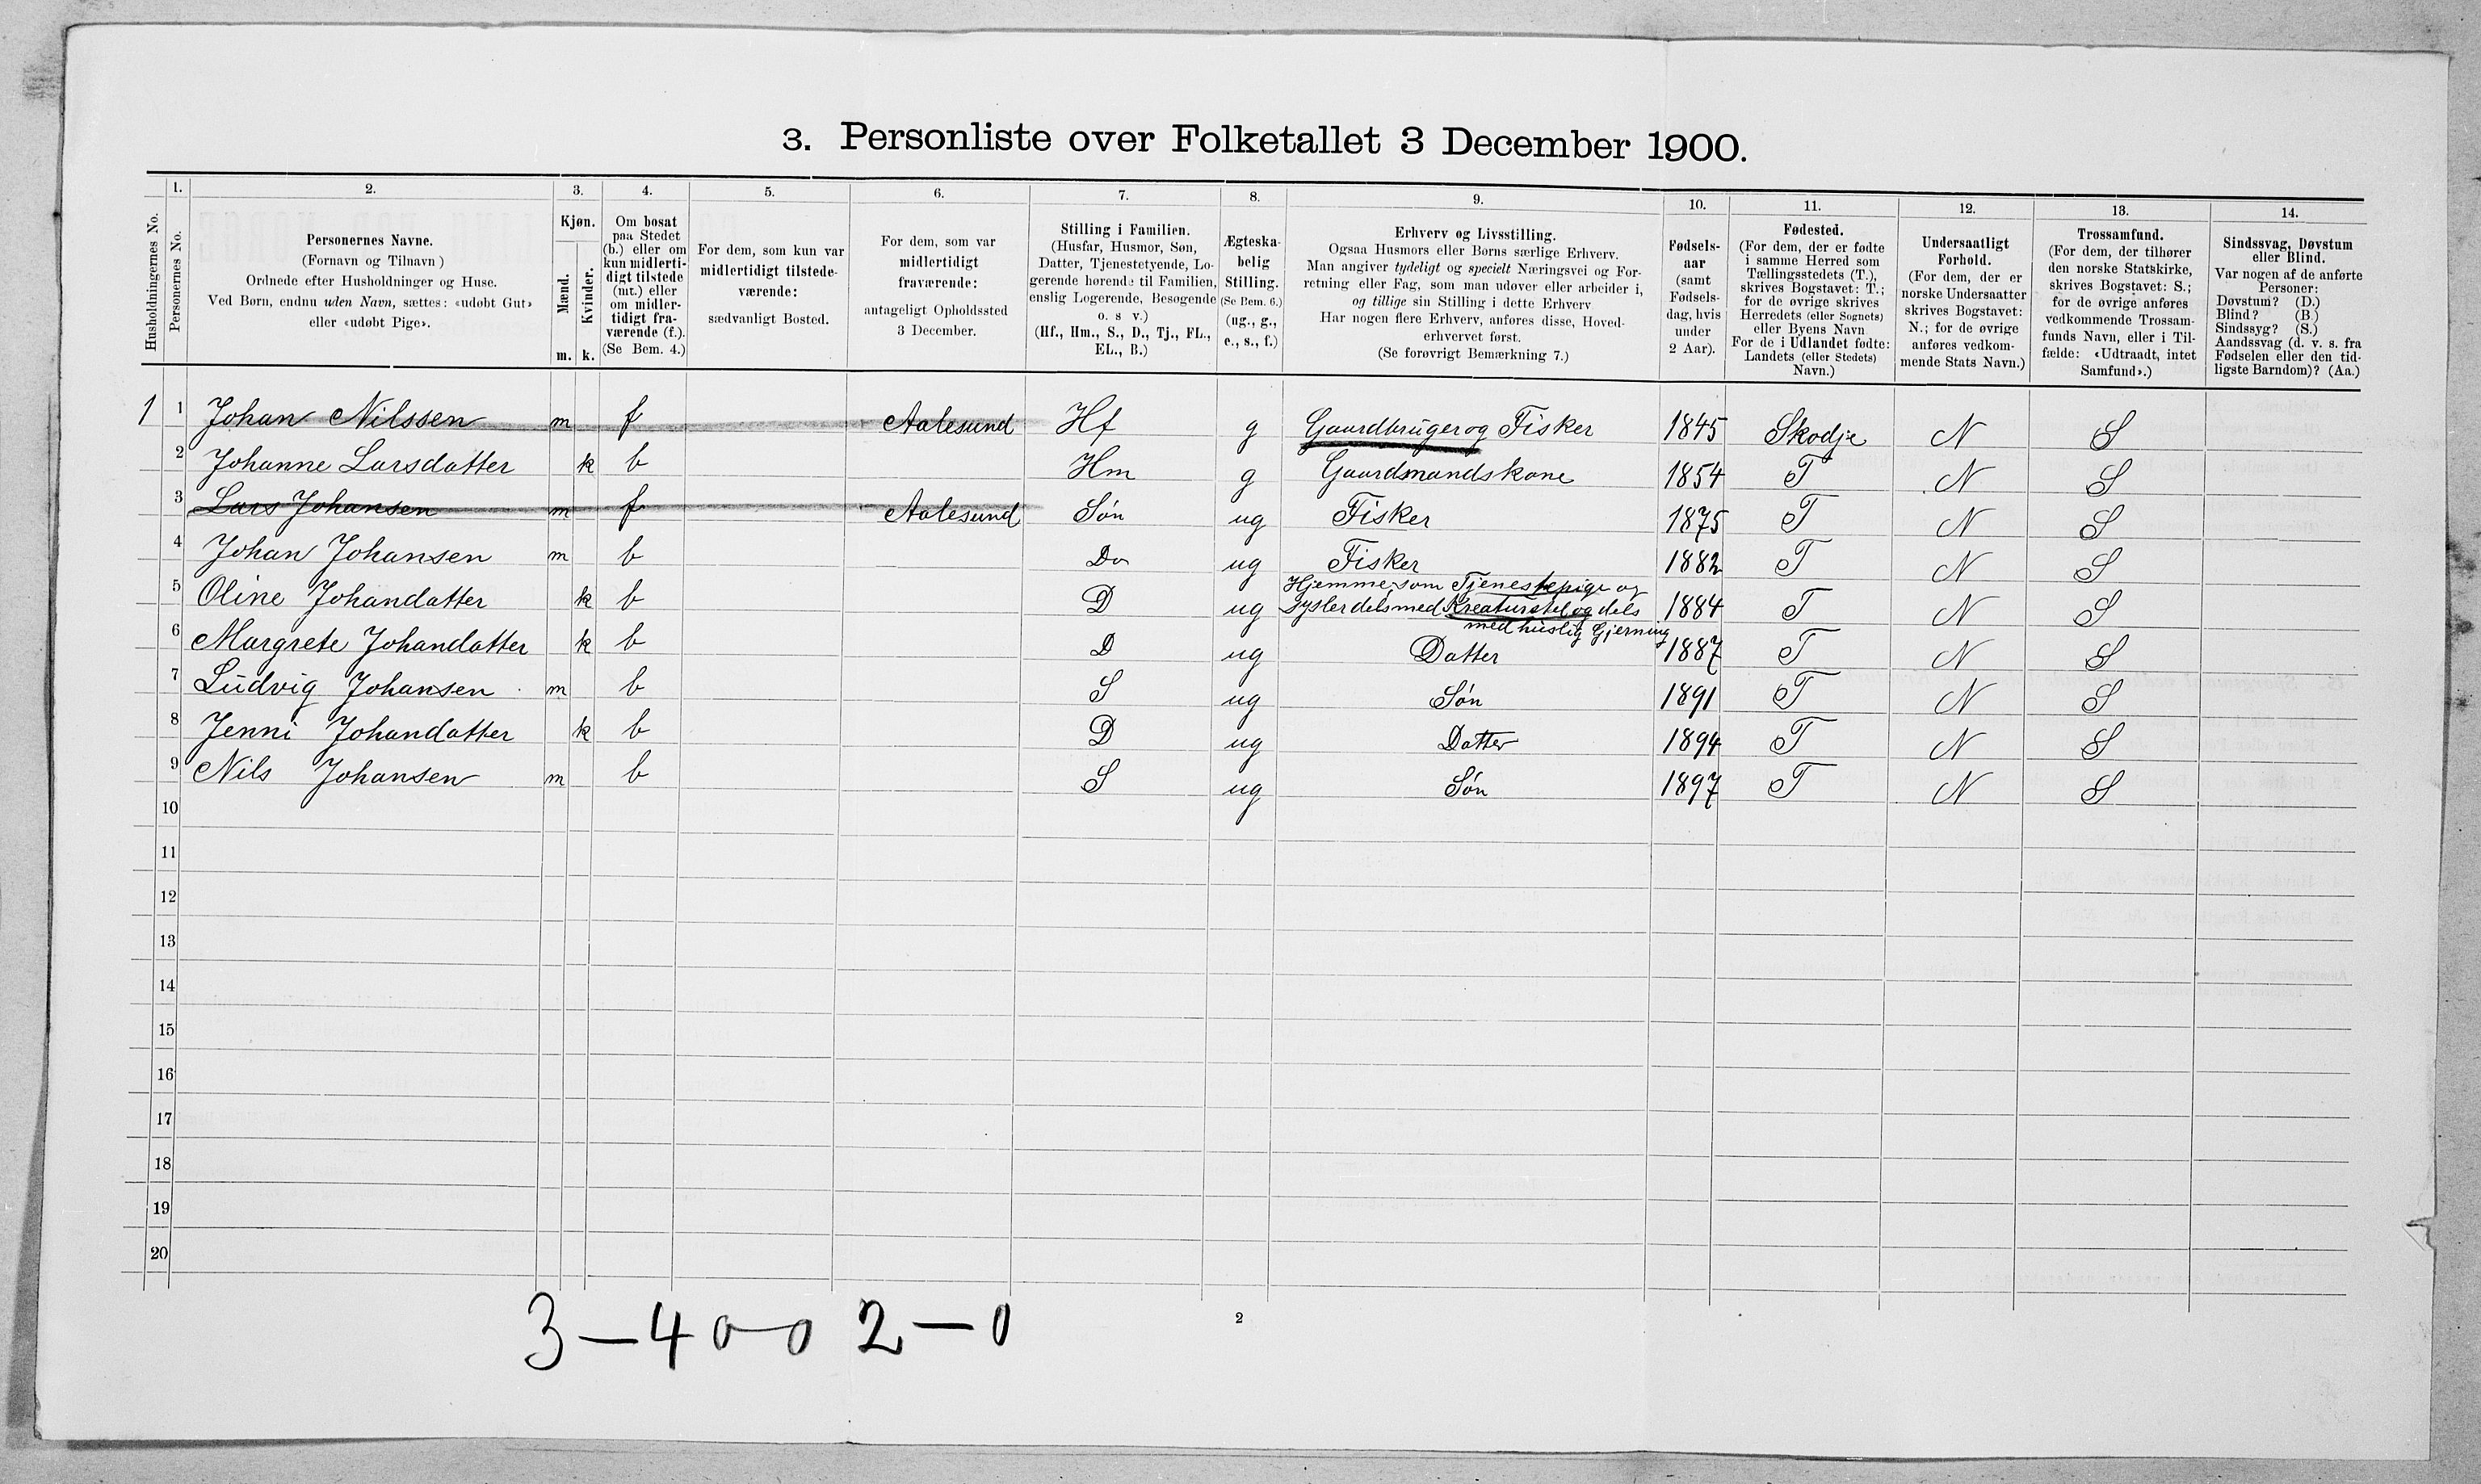 3. Personliste over Folketallet 3 December 1900.
1. 2. 3. 4. 5. 6. 7. 8. 9. 10. 11. 12. 13. 14.
Husholdningernes No.
Personernes No.
Personernes Navne.
(Fornavn og Tilnavn)
Ordnede efter Husholdninger og Huse.
Ved Børn, endnu uden Navn, sættes: «udøbt Gut»
eller «udøbt Pige».
Kjøn.
Mænd.
Kvinder.
m. k.
Om bosat
paa Stedet
(b.) eller om
kun midlerti-
digt tilstede
(mt.) eller
om midler-
tidigt fra-
værende (f.).
(Se Bem. 4.)
For dem, som kun var
midlertidigt tilstede-
værende:
sædvanligt Bosted.
For dem, som var
midlertidigt
fraværende:
antageligt Opholdssted
3 December.
Stilling i Familien.
(Husfar, Husmor, Søn,
Datter, Tjenestetyende, Lo-
gerende hørende til Familien,
enslig Logerende, Besøgende
o. s v.)
(Hf., Hm., S., D., Tj., FL.,
EL., B.)
Ægteska-
belig
Stilling.
(Se Bem. 6.)
(ug., g.,
e., s., f.)
Erhverv og Livsstilling.
Ogsaa Husmors eller Børns særlige Erhverv.
Man angiver tydeligt og specielt Næringsvei og For-
retning eller Fag, som man udøver eller arbeider i,
og tillige sin Stilling i dette Erhverv
Har nogen flere Erhverv, anføres disse, Hoved-
erhvervet først.
(Se forøvrigt Bemærkning 7.)
Fødsels-
aar
(samt
Fødsels-
dag, hvis
under
2 Aar).
Fødested.
(For dem, der er fødte
i samme Herred som
Tællingsstedets (T.),
skrives Bogstavet: T.;
for de øvrige skrives
Herredets (eller Sognets)
eller Byens Navn
For de i Udlandet fødte:
Landets (eller Stedets)
Navn.)
Undersaatligt
Forhold.
(For dem, der er
norske Undersaatter
skrives Bogstavet:
N.; for de øvrige
anføres vedkom-
mende Stats Navn.)
Trossamfund.
(For dem, der tilhører
den norske Statskirke,
skrives Bogstavet: S.;
for de øvrige anføres
vedkommende Trossam-
funds Navn, eller i Til-
fælde: «Udtraadt, intet
Samfund».)
Sindssvag, Døvstum
eller Blind.
Var nogen af de anførte
Personer:
Døvstum? (D.)
Blind? (B.)
Sindssyg? (S.)
Aandssvag (d. v. s. fra
Fødselen eller den tid-
ligste Barndom)? (Aa.)
1 1 Johan Nilssen m f Aalesund Hf g Gaardbruger og Fisker 1845 Skodje N S
2 Johanne Larsdatter k b Hm g Gaardmandskone 1854 T N S
3 Lars Johansen m f Aalesund Søn ug Fisker 1875 T N S
4 Johan Johansen m b Do ug Fisker 1882 T N S
5 Oline Johandatter k b D ug Hjemme som Tjenestepige og
sysler dels med Kreaturstel og dels
med huslig Gjerning 1884 T N S
6 Margrete Johandatter k b D ug Datter 1887 T N S
7 Ludvig Johansen m b S ug Søn 1891 T N S
8 Jenni Johandatter k b D ug Datter 1894 T N S
9 Nils Johansen m b S ug Søn 1897 T N S
10
11
12
13
14
15
16
17
18
19
20
3 — 4 0 — 0 2 — 0
2